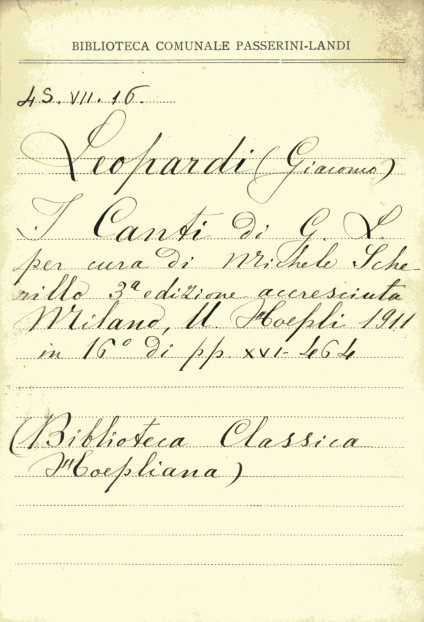 BIBLIOTECA COMUNALE PASSERINI-LANDI
4S. VII. 16.
Leopardi (Giacomo)
I Canti di G. L.
per cura di Michele Sche
rillo 3ª edizione accresciuta
Milano, U. Hoepli 1911
in 16° di pp. XVI-464
(Biblioteca Classica
Hoepliana)